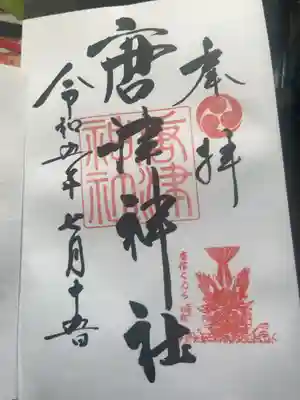 奉拝
唐津神社
唐津
神社
令和五年七月十五日